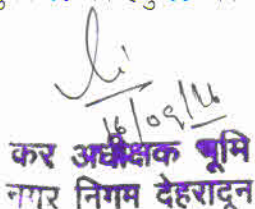 16/09/16
कर अधीक्षक भूमि
नगर निगम देहरादून